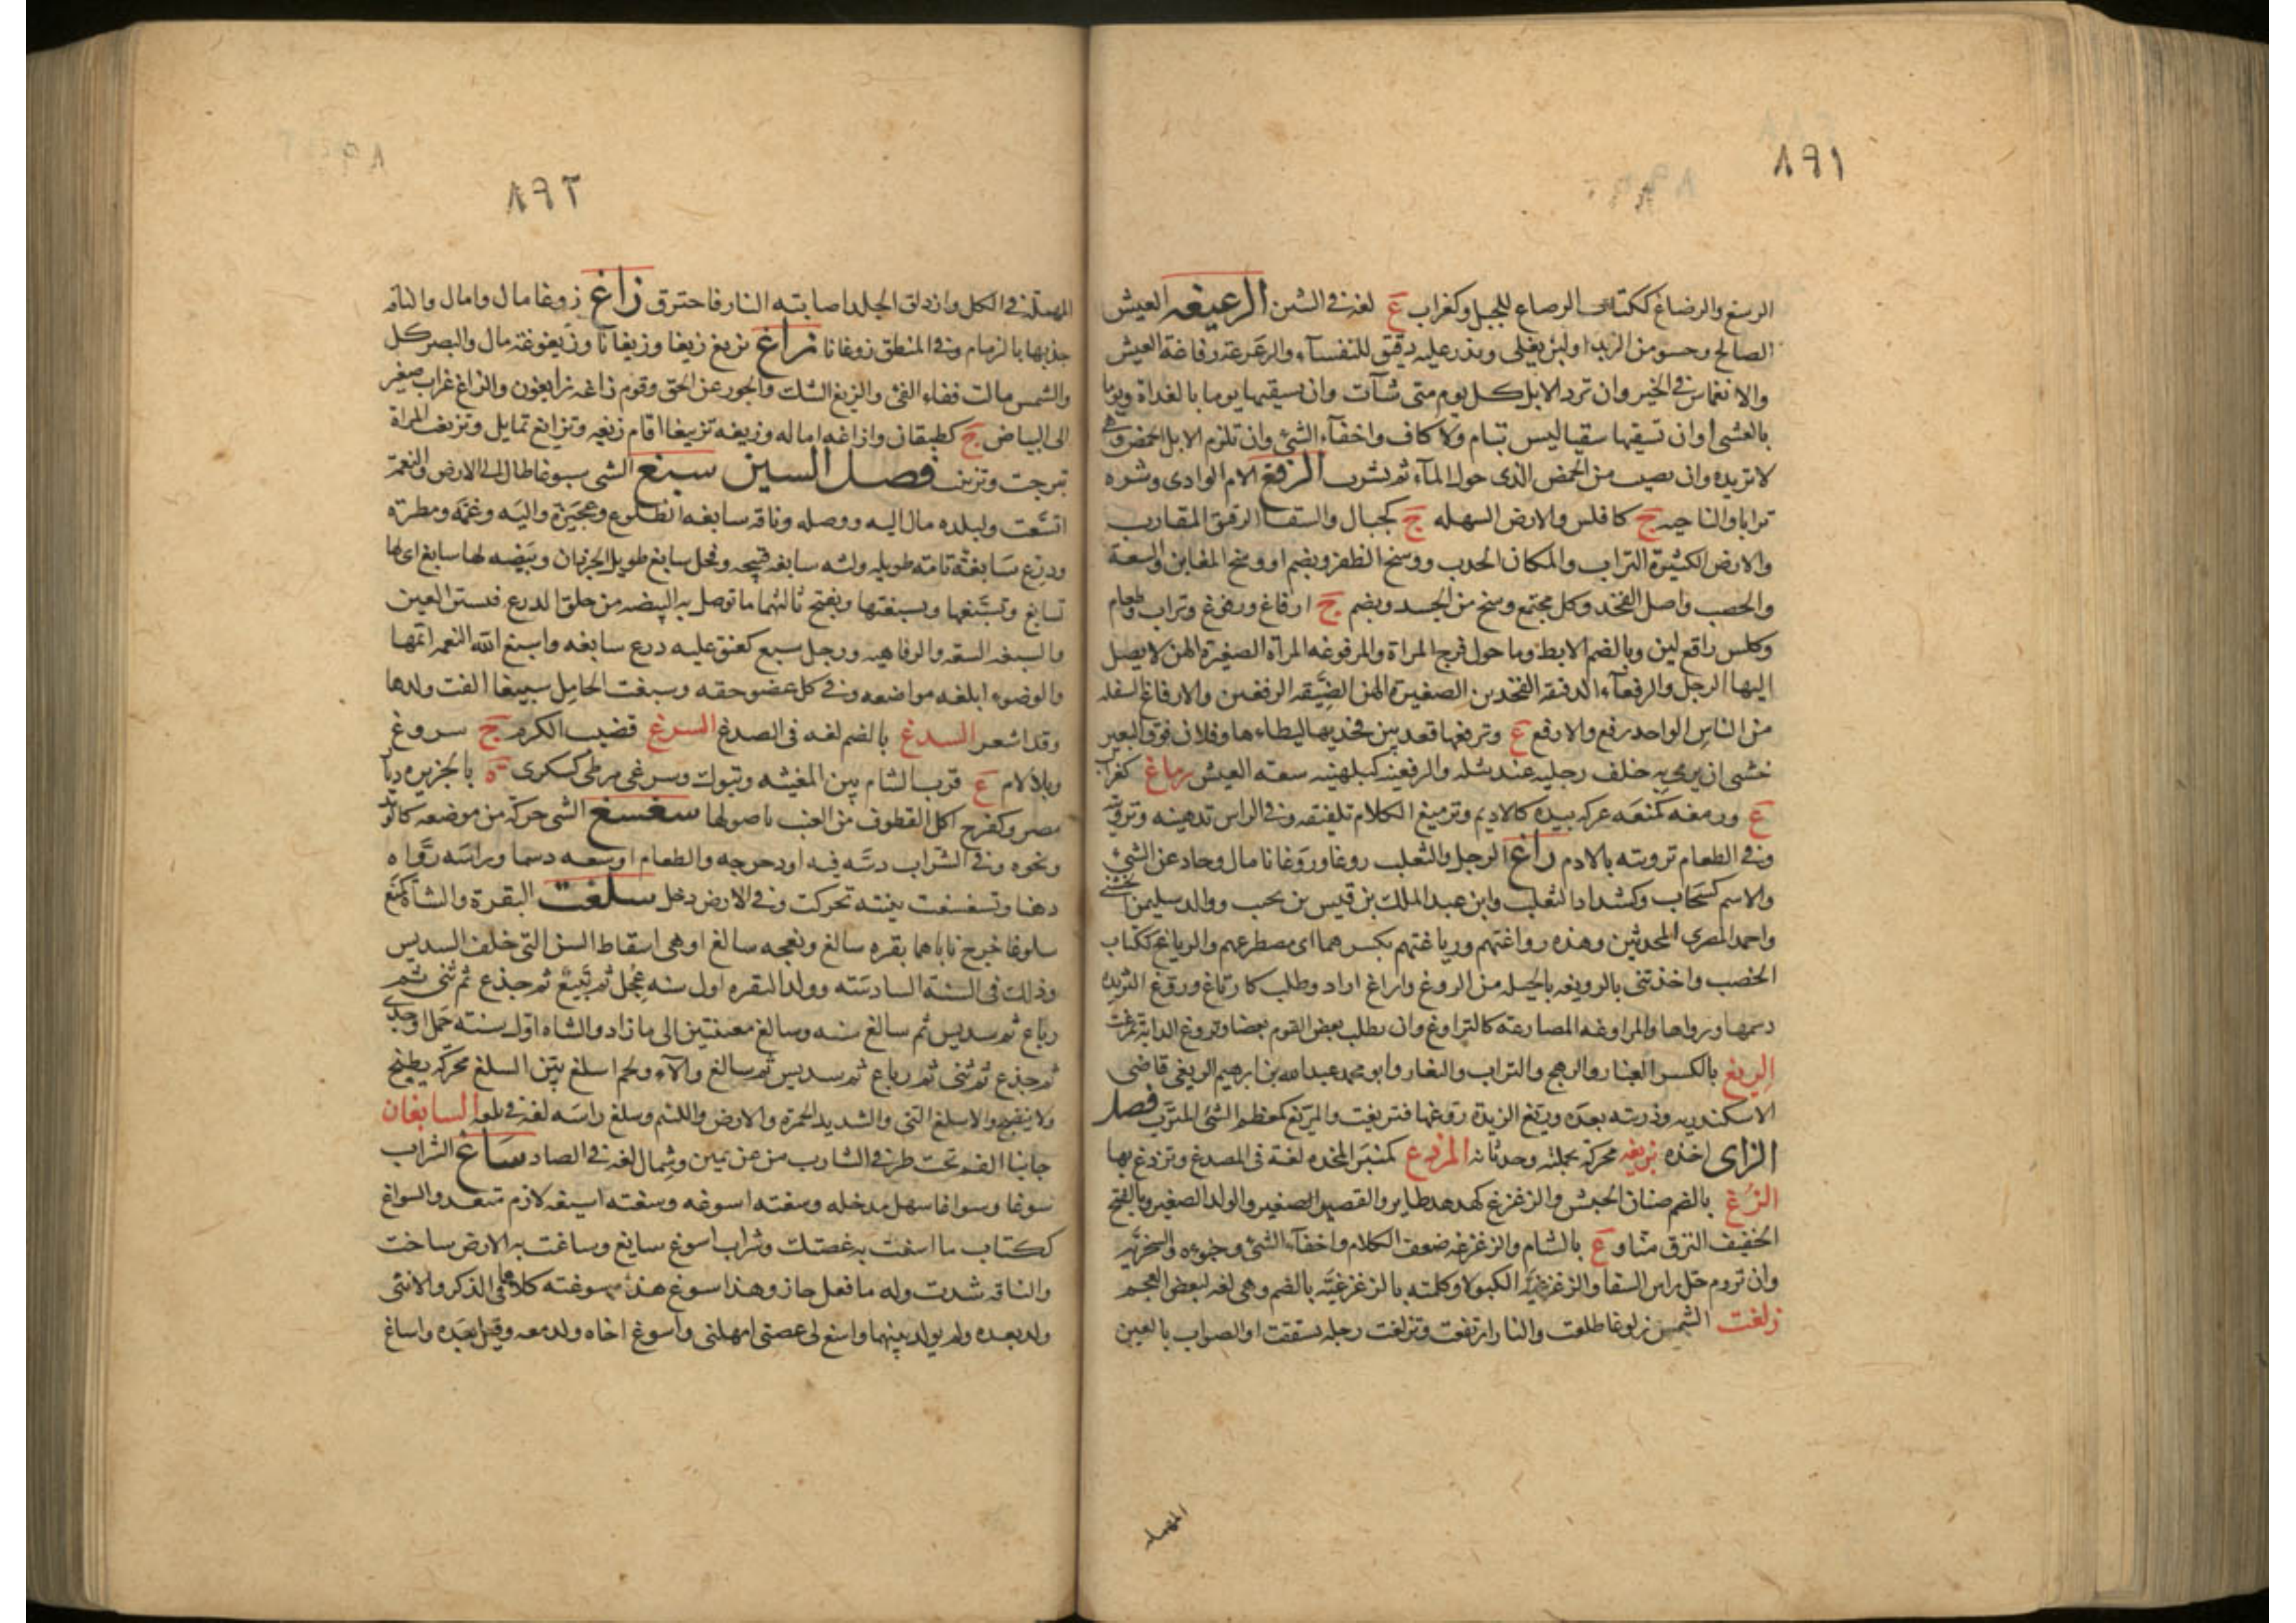 ٨٩١
الرسغ والرضاغ ككتاب الرصاع للجبل وكغراب ع لغة في الشين الرغيغه العيش
الصالح وحسو من الزبد اولبن يغلى ويذر عليه دقيق للنفسآء والرغرغة رفاغة العيش
والانغماس في الخير وان ترد الابل كل يوم متى شآت وان يسقيها يوما بالغداة ويوما
بالعشي اوان تسقيها سقيا ليس بتام ولا كاف واخفآء الشئ وان تلزم الابل الحمض وهي
لا تريده وان تصيب من الحمض الذى حول المآء ثم تشرب الرفغ الام الوادى وشره
ترابا والناحيه ج كافلس والارض السهله ج كجبال والسقا الرقيق المقارب
والارض الكثيرة التراب والمكان الجدب ووسخ الظفر ويضم او وسخ المغابن والسعة
والخصب واصل الفخذ وكل مجتمع وسخ من الجسد ويضم ج ارفاغ ورفوغ وتراب وطعام
وكلس رافع لين وبالضم الابط وما حول فرج المراة والمرفوغه المراة الصغيرة الهن لا يصل
اليها الرجل والرفغآء الدقيقة الفخذين الصغيرة الهن الضيقه الرفغين والارفاغ السفله
من الناس الواحد رفغ والارفغ ع وترفغها قعد بين فخذيها ليطاءها وفلان فوق البعير
خشى ان يرمى به خلف رجليه عند شله والرفغينه كبلهنيه سعة العيش رماغ كغراب
ع ورمغه كمنعه عركه بيده كالاديم وترميغ الكلام تلفيقه وفي الراس تدهينه وترويته
وفي الطعام ترويته بالادم راغ الرجل والثعلب روغا وروغانا مال وحاد عن الشئ
والاسم كسحاب وكشداد الثعلب وابن عبد الملك بن قيس بن يحب ووالد سليمن الخشني
واحمد المصري المحدثين وهذه رواغتهم ورياغتهم بكسرهما اى مصطرعهم والرياغ ككتاب
الخصب واخذتنى بالرويغه بالحيله من الروغ واراغ اراد وطلب كارتاغ وروغ الثريده
دسمها ورواها والمراوغه المصارعة كالتراوغ وان يطلب بعض القوم بعضا وتروغ الدابة تمرغت
الريغ بالكسر الغبار والرهج والتراب والنغار وابو محمد عبد الله بن ابرهيم الريغى قاضى
الاسكندريه وذريته بعده وريغ الزبدة روغها فتريغت والمريغ كمعظم الشئ المترب فصل
الزاى اخذه بزيغه محركة بجملته وحدثانه المزدغ كمنبر المخده لغة في المصدغ وتزدغ بها
الزغ بالضم صنان الحبش والزغزغ كهدهد طاير والقصير الصغير والولد الصغير وبالفتح
الخفيف النزق منا و ع بالشام والزغزغه ضعف الكلام واخفآء الشئ وخبوه والسخريه
وان تروم حل راس السقا والزغزغية الكبولا وكلمته بالزغزغية بالضم وهى لغه لبعض العجم
زلغت الشمس زلوغا طلعت والنار ارتفعت وتزلغت رجله تشققت او الصواب بالعين
المهمله
٨٩٢
المهملة في الكل وازدلق الجلد اصابته النار فاحترق زاغ زوغا مال وامال والناقه
جذبها بالزمام وفي المنطق زوغانا زاغ يزيغ زيغا وزيغانا وزيغوغة مال والبصر كل
والشمس مالت ففاء الفئ والزيغ الشك والجور عن الحق وقوم زاغه زايغون والزاغ غراب صغير
الى البياض ج كطيقان وازاغه اماله وزيغه تزييغا اقام زيغه وتزايغ تمايل وتزيغت المراة
تبرجت وتزينت فصل السين سبغ الشى سبوغا طال الى الارض والنعمة
اتسعت ولبلده مال اليه ووصله وناقه سابغه الضلوع وعجيزة واليه وغمة ومطرة
ودرع سابغة تامة طويله ولثه سابغه قبيحه وفحل سابغ طويل الجردان وبيضه لها سابغ اى لها
تسابغ وتسبغها وتسبغتها ويفتح ثالثهما ما توصل به البيضه من حلق الدرع فتستر العين
والسبغه السعة والرفاهيه ورجل سبغ كعنق عليه درع سابغه واسبغ الله النعمه اتمها
والوضوء ابلغه مواضعه وفي كل عضو حقه وسبغت الحامل تسبيغا القت ولدها
وقد اشعر السدغ بالضم لغه فى الصدغ السرغ قضيب الكرم ج سروغ
وبلا لام ع قرب الشام بين المغيثه وتبوك وسرغى مرطى كسكرى ة بالجزيره ديار
مصر وكفرح اكل القطوف من العنب باصولها سغسغ الشى حركه من موضعه كالوتد
ونحوه وفي التراب دسه فيه او دحرجه والطعام اوسعه دسما وراسه رواه
دهنا وتسغسغت ثنيته تحركت وفي الارض دخل سلغت البقرة والشاة كمنع
سلوغا خرج ناباهما بقره سالغ ونعجه سالغ او هى اسقاط السن التى خلف السديس
وذلك فى السنة السادسة وولد البقره اول سنه عجل ثم تبيع ثم جذع ثم ثنى ثم
رباع ثم سديس ثم سالغ سنه وسالغ سنتين الى ما زاد والشاه اول سنته حمل او جدى
ثم جذع ثم ثنى ثم رباع ثم سديس ثم سالغ والآء ولحم اسلغ بين السلغ محركه يطبخ
ولا ينضج والاسلغ النى والشديد الحمرة والابرص واللئيم وسلغ راسه لغة في ثلغه السامغان
جانبا الفم تحت طرفي الشارب من عن يمين وشمال لغه في الصاد ساغ الشراب
سوغا وسواغا سهل مدخله وسغته اسوغه وسغته اسيغه لازم متعد والسواغ
ككتاب ما اسغت به غصتك وشراب اسوغ سايغ وساغت به الارض ساخت
والناقه شدت وله ما فعل جاز وهذا سوغ هذا وسوغته كلاهما في الذكر والانثى
ولد بعده ولم يولد بينهما واسغ لى غصتى امهلنى واسوغ اخاه ولد معه وقيل بعده واساغ